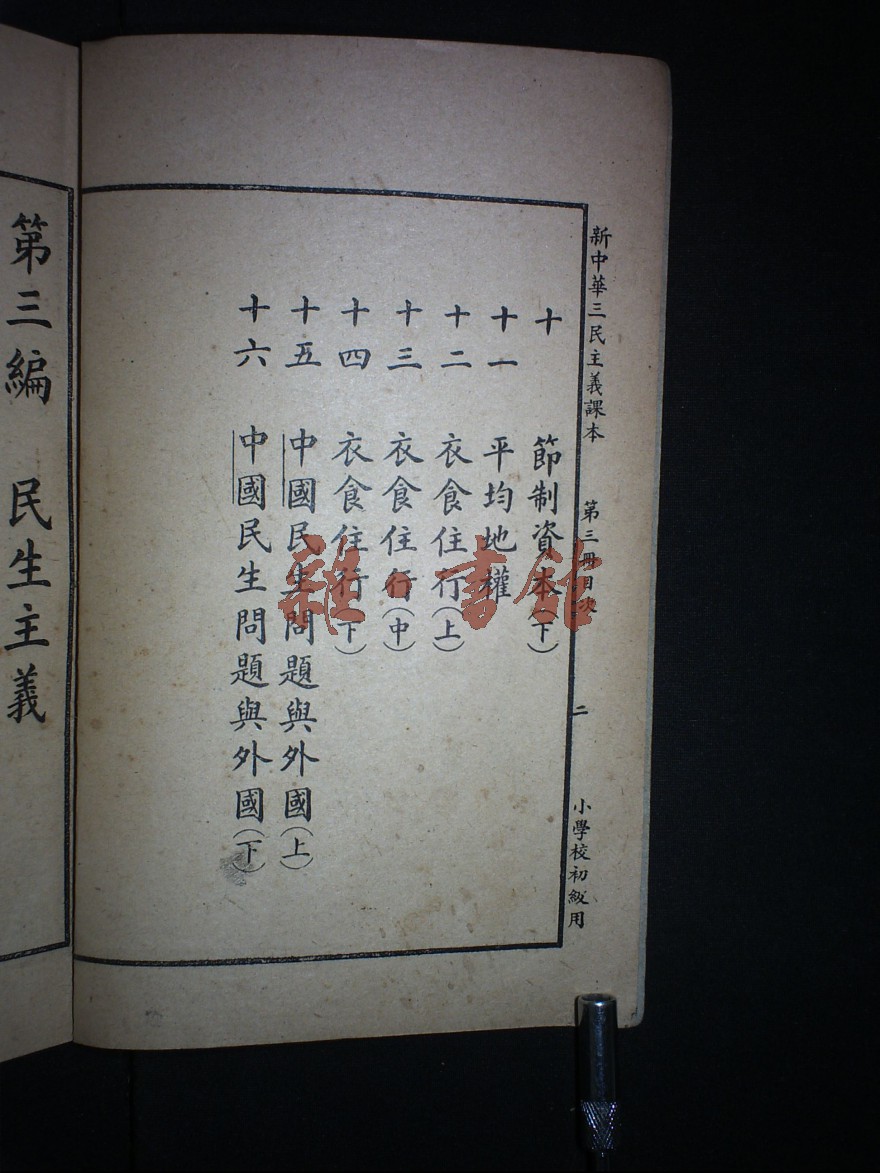 新中華三民主義課本 第三冊目次 二 小學校初級用
十 節制資本(下)
十一 平均地權
十二 衣食住行(上)
十三 衣食住行(中)
十四 衣食住行(下)
十五 中國民生問題與外國(上)
十六 中國民生問題與外國(下)
第三編 民生主義
雜·書館